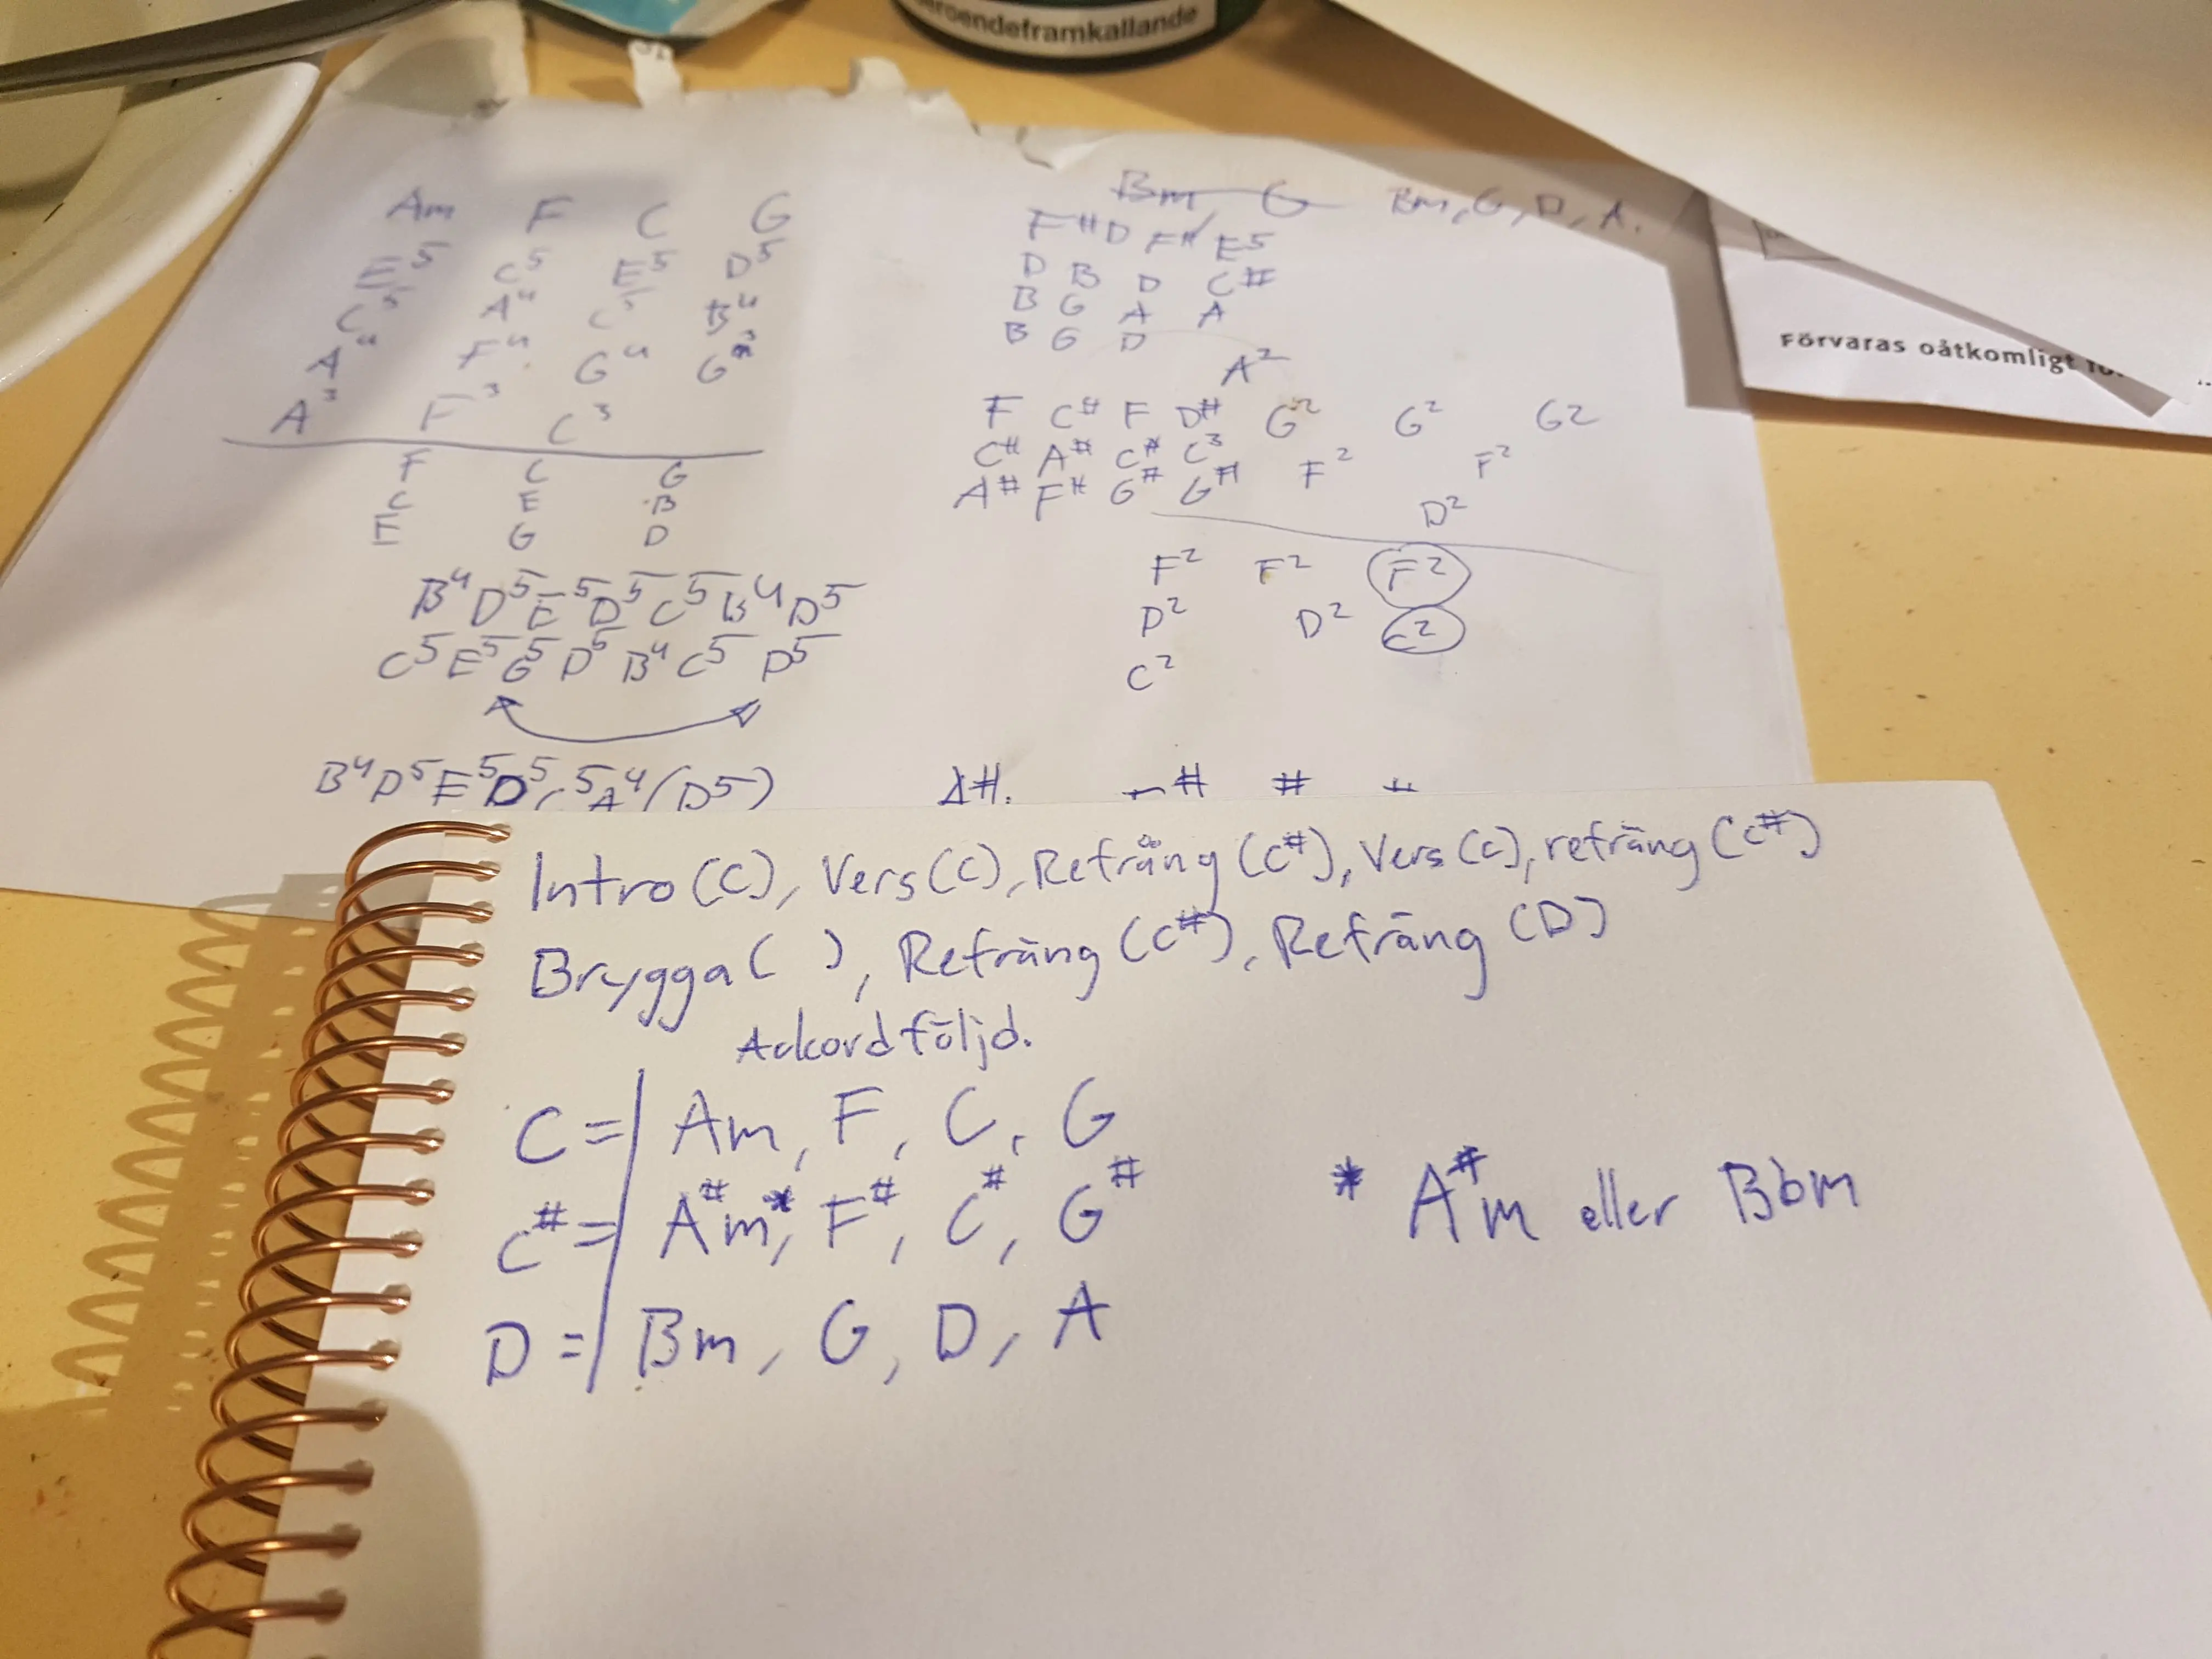 beroendeframkallande
Förvaras oåtkomligt
Am F C G
E5 C5 E5 D5
C5 A4 C5 B4
A4 F4 G4 G3
A3 F3 C3
F C G
C E B
E G D
B4 D5 E5 D5 C5 B4 D5
C5 E5 G5 D5 B4 C5 D5
B4 D5 E5 D5 C5 A4 (D5)
Bm, G Bm, G, D, A.
F# D F# E5
D B D C#
B G A A
B G D
A2
F C# F D# G2 G2 G2
C# A# C# C3 F2 F2
A# F# G# G# D2
F2 F2 F2
D2 D2 C2
C2
A#. # # #
Intro (C), Vers (C), Refräng (C#), Vers (C), refräng (C#)
Brygga ( ), Refräng (C#), Refräng (D)
Ackordföljd.
C = | Am, F, C, G
C# = | A#m*, F#, C#, G#
* A#m eller Bbm
D = | Bm, G, D, A